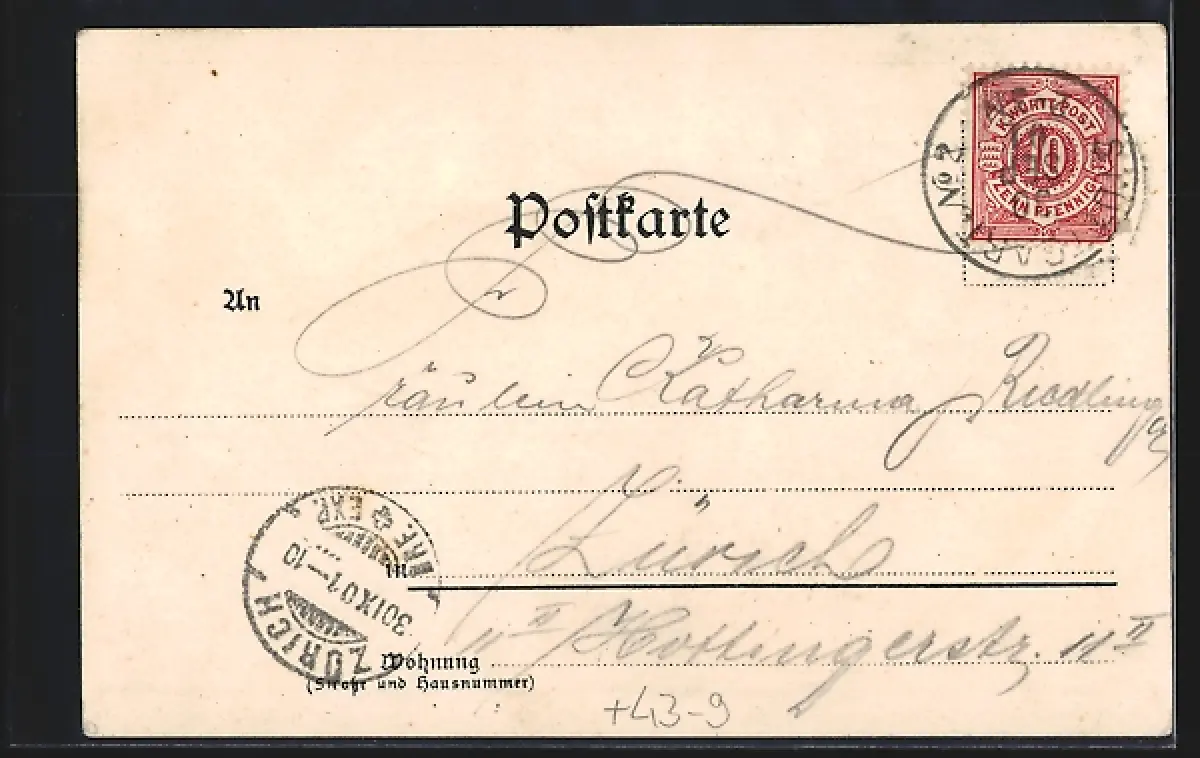 K.WÜRTT.POST
10
ZEHN PFENNIG
STUTTGART No 2
Postkarte
An
Fräulein Katharina Riedlinger
Zürich
in
ZÜRICH
30 IX 01 - 10
BRIEFE EXP.
Wohnung
(Straße und Hausnummer)
11 II Hottingerstr. 11 II
+43-9